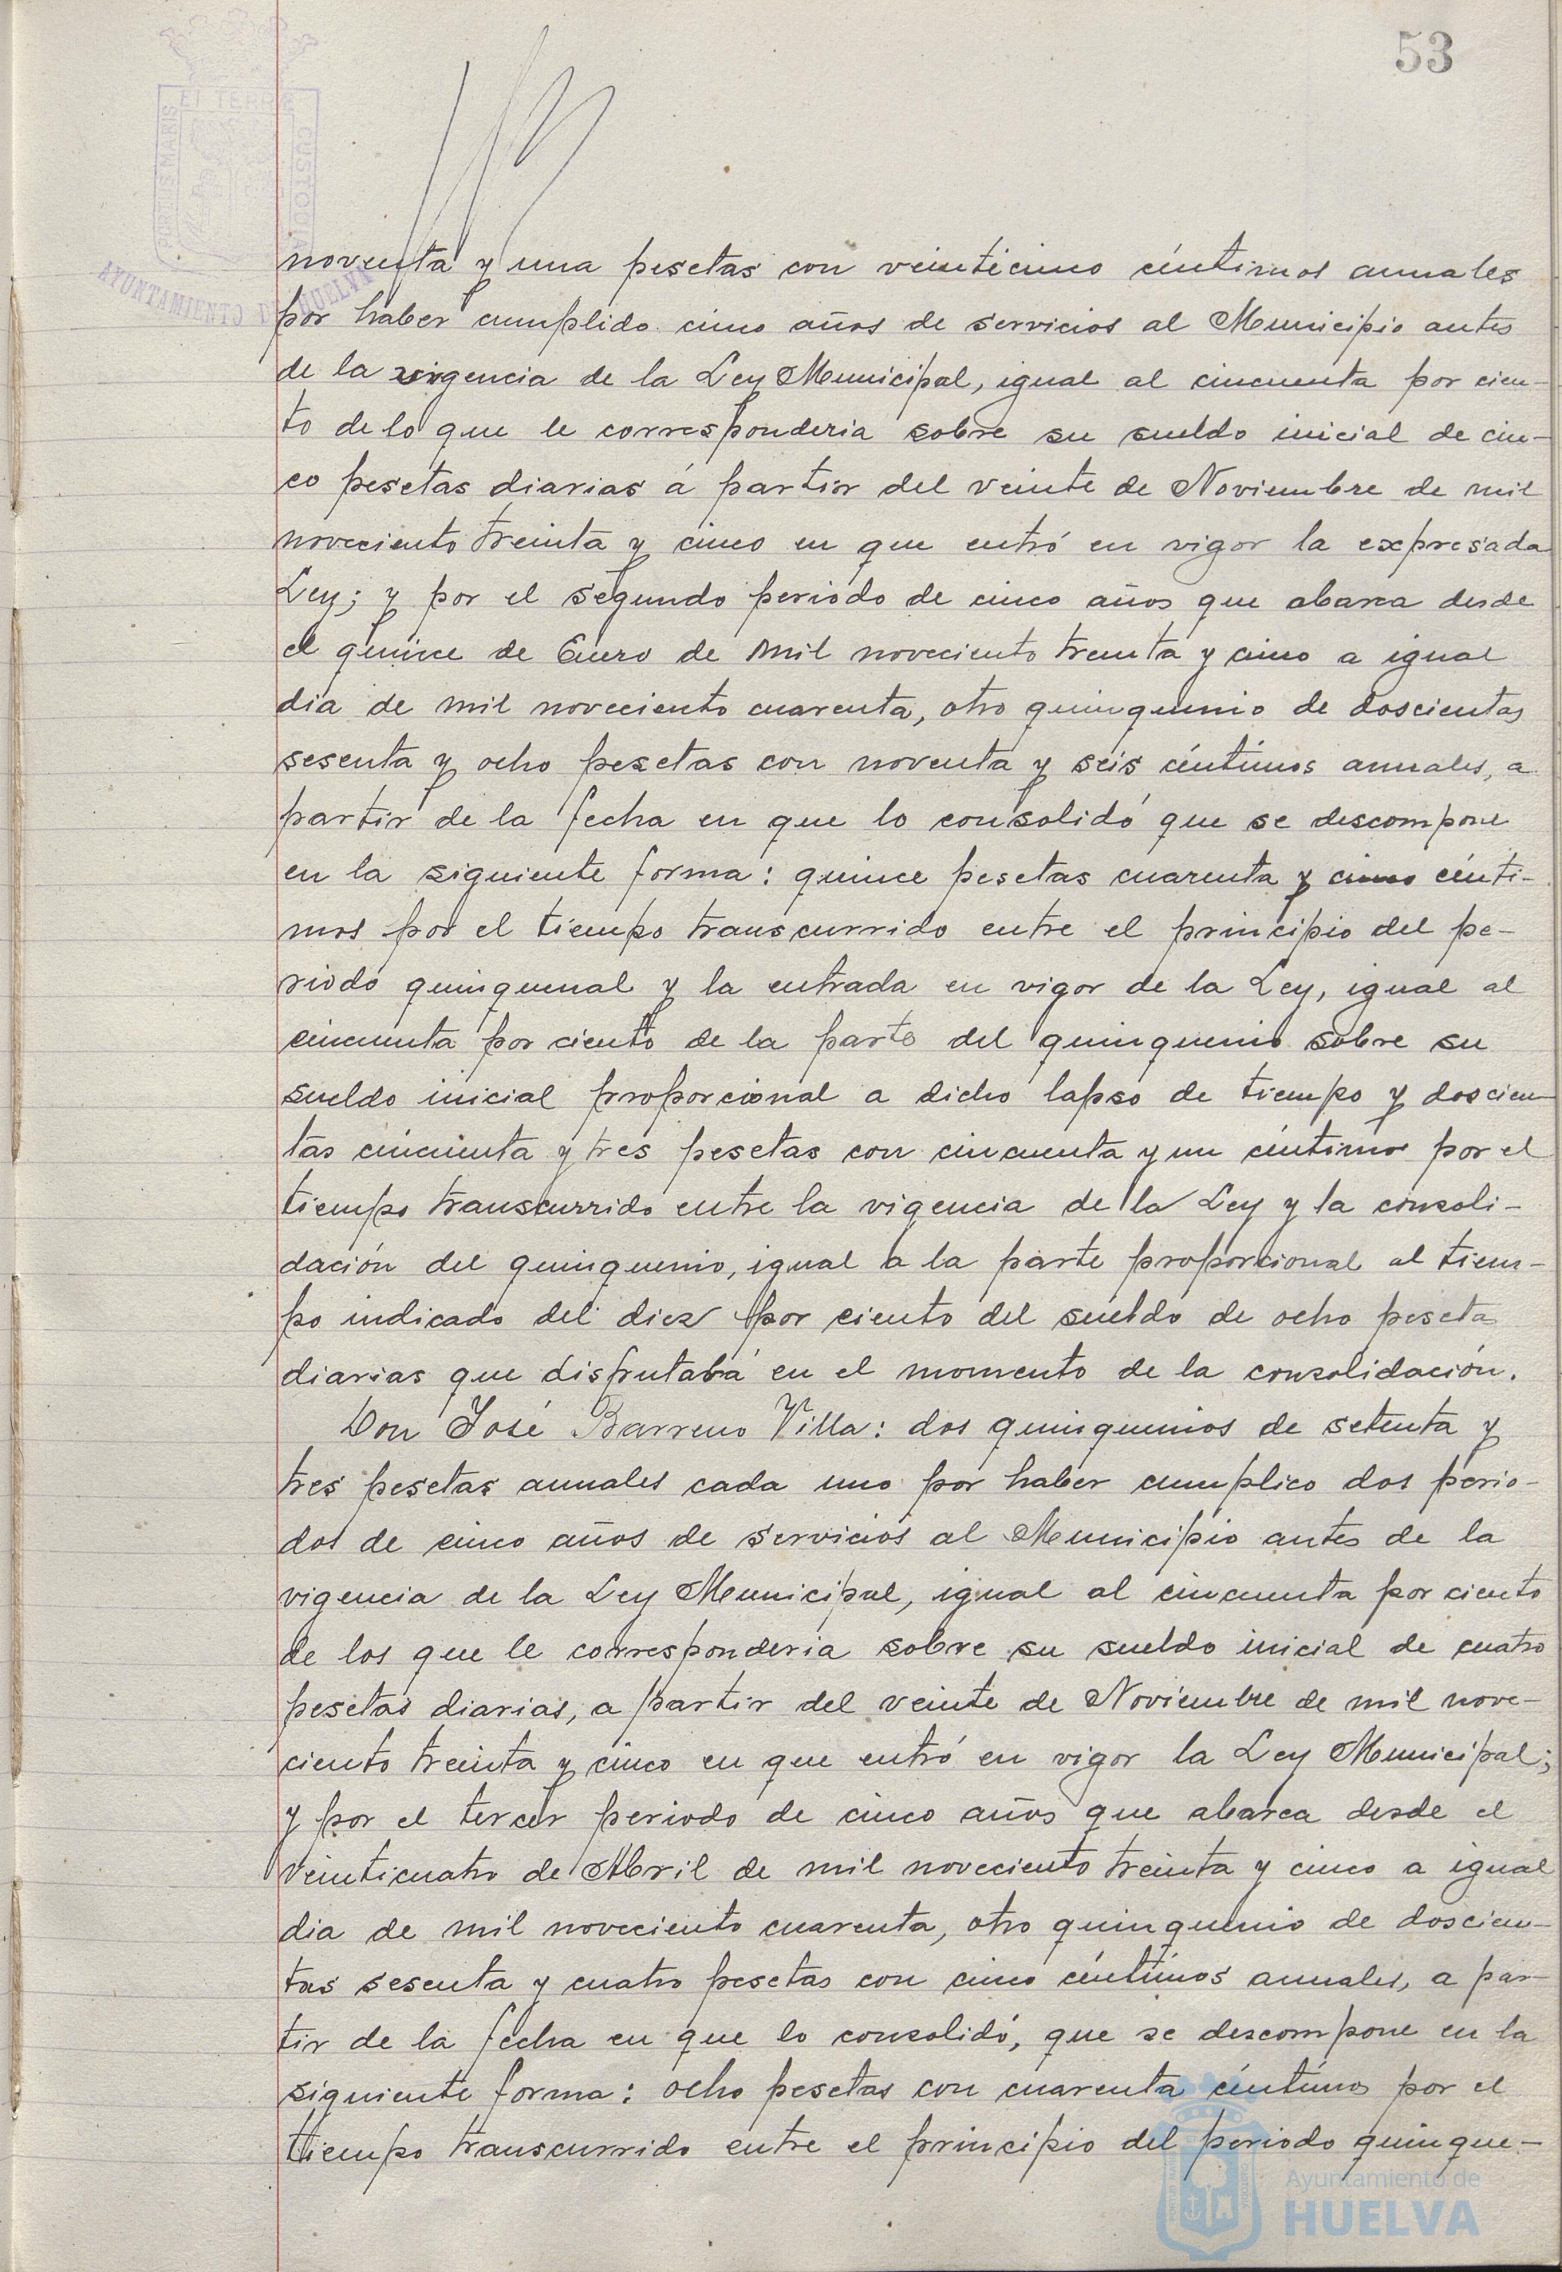 53
PORTUS MARIS ET TERRÆ CUSTODIA
AYUNTAMIENTO DE HUELVA
noventa y una pesetas con veinticinco céntimos anuales
por haber cumplido cinco años de servicios al Municipio antes
de la vigencia de la Ley Municipal, igual al cincuenta por cien-
to de lo que le corresponderia sobre su sueldo inicial de cin-
co pesetas diarias á partir del veinte de Noviembre de mil
noveciento treinta y cinco en que entró en vigor la expresada
Ley; y por el segundo periodo de cinco años que abarca desde
el quince de Enero de mil noveciento treinta y cinco a igual
dia de mil noveciento cuarenta, otro quinquenio de doscientas
sesenta y ocho pesetas con noventa y seis céntimos anuales, a
partir de la fecha en que lo consolidó que se descompone
en la siguiente forma: quince pesetas cuarenta y cinco cénti-
mos por el tiempo transcurrido entre el principio del pe-
riodo quinquenal y la entrada en vigor de la Ley, igual al
cincuenta por ciento de la parte del quinquenio sobre su
sueldo inicial proporcional a dicho lapso de tiempo y doscien-
tas cincuenta y tres pesetas con cincuenta y un céntimos por el
tiempo transcurrido entre la vigencia de la Ley y la consoli-
dación del quinquenio, igual a la parte proporcional al tiem-
po indicado del diez por ciento del sueldo de ocho peseta
diarias que disfrutaba en el momento de la consolidación.
Don José Barreno Villa: dos quinquenios de setenta y
tres pesetas anuales cada uno por haber cumplico dos perio-
dos de cinco años de servicios al Municipio antes de la
vigencia de la Ley Municipal, igual al cincuenta por ciento
de los que le corresponderia sobre su sueldo inicial de cuatro
pesetas diarias, a partir del veinte de Noviembre de mil nove-
ciento treinta y cinco en que entró en vigor la Ley Municipal;
y por el tercer periodo de cinco años que abarca desde el
veinticuatro de Abril de mil noveciento treinta y cinco a igual
dia de mil noveciento cuarenta, otro quinquenio de doscien-
tas sesenta y cuatro pesetas con cinco céntimos anuales, a par-
tir de la fecha en que lo consolidó, que se descompone en la
siguiente forma: ocho pesetas con cuarenta céntimos por el
tiempo transcurrido entre el principio del periodo quinque-
Ayuntamiento de
HUELVA